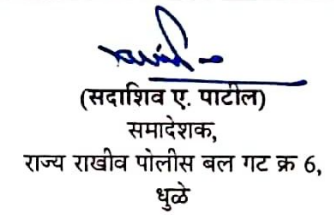 (सदाशिव ए. पाटील)
समादेशक,
राज्य राखीव पोलीस बल गट क्र 6,
धुळे